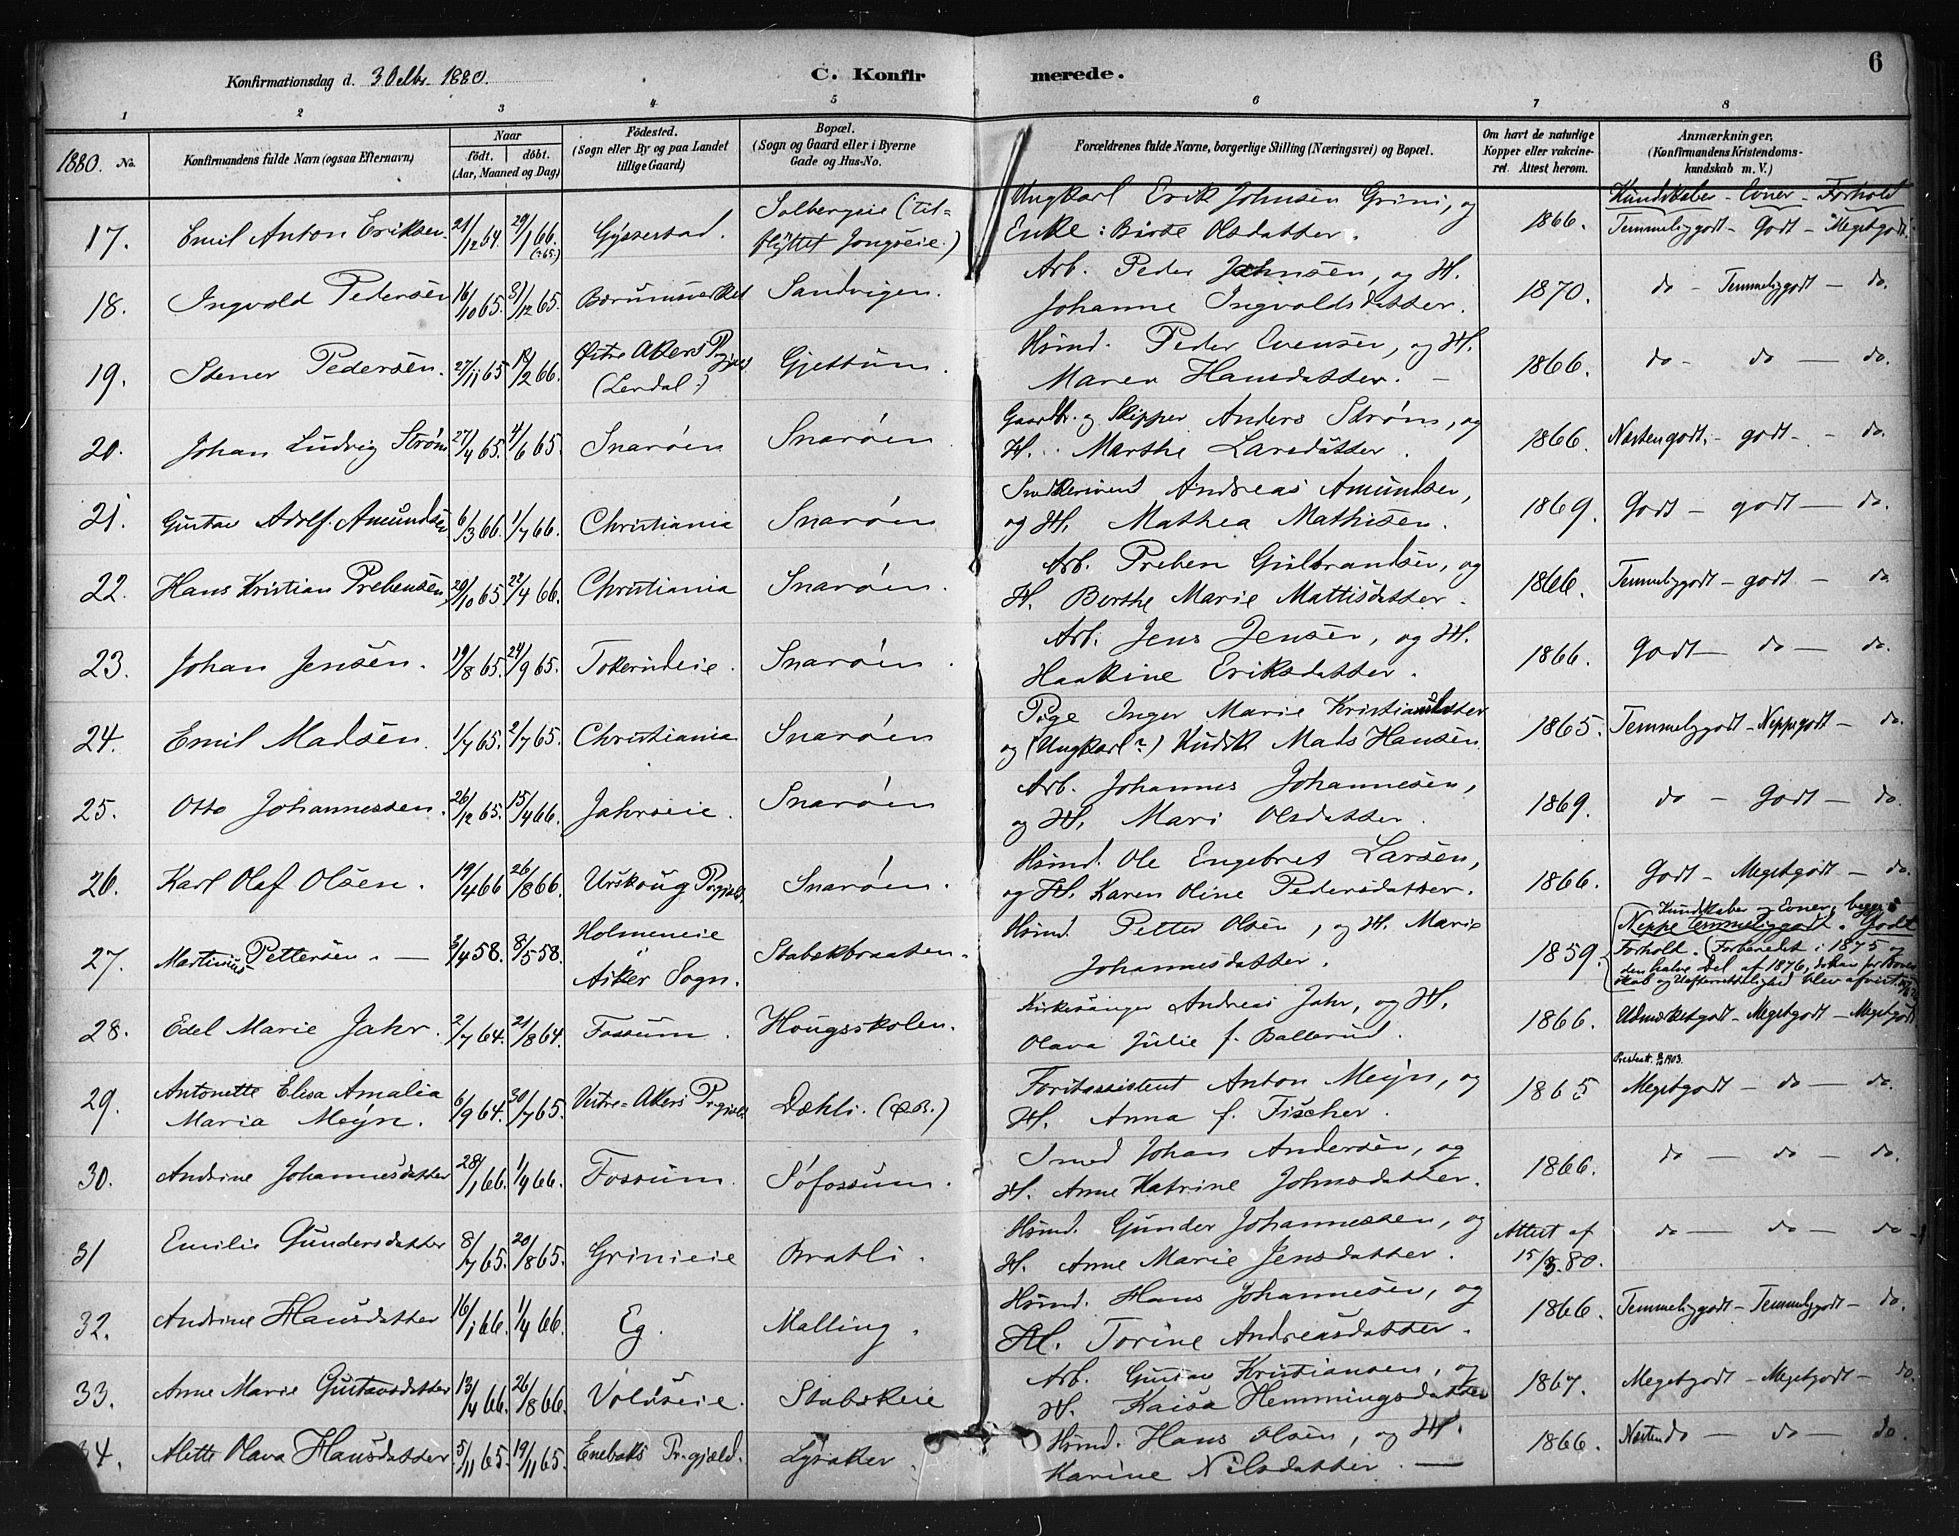 6
Konfirmationsdag d. 3 Octbr. 1880.
C. Konfirmerede.
1 2 3 4 5 6 7 8
1880. No.
Konfirmandens fulde Navn (ogsaa Efternavn)
Naar
født. døbt.
(Aar, Maaned og Dag)
Fødested.
(Sogn eller By og paa Landet
tillige Gaard)
Bopæl.
(Sogn og Gaard eller i Byerne
Gade og Hus-No.
Forældrenes fulde Navne, borgerlige Stilling (Næringsvei) og Bopæl.
Om havt de naturlige
Kopper eller vakcine-
ret. Attest herom.
Anmærkninger,
(Konfirmandens Kristendoms-
kundskab m. V.)
Kundskaber - Evner - Forhold
17. Emil Anton Eriksen 21/12 64. 29/1 66. (?65.) Gyssestad. Solbergeie (til-
flyttet Jongseie.)
Ungkarl Erik Johnsen Grini, og
Enke: Birte Olsdatter. 1866. Temmeliggodt - Godt - Megetgodt.
18. Ingvold Pedersen 16/10 65. 31/12 65. Bærumsverket Sandvigen.
Arb. Peder Johnsen, og H.
Johanne Ingvoldsdatter. 1870. do - Temmeliggodt - do.
19. Stener Pedersen. 27/11 65 18/2 66. Østre Akers Prgjeld
(Lerdal.) Gjettum.
Hsmd. Peder Evensen, og H.
Maren Hansdatter. - 1866. do - do - do.
20. Johan Ludvig Strøm 27/4 65. 4/6 65. Snarøen Snarøen
Gaardbr. og Skipper Anders Strøm, og
H. Marthe Larsdatter. 1866. Næstengodt. - godt - do.
21. Gustav Adolf Amundsen 6/3 66. 1/7 66. Christiania Snarøen
Andreas Amundsen,
og H. Mathea Mathisen. 1869. Godt - godt - do.
22. Hans Kristian Prebensen 20/10 65. 22/4 66. Christiania Snarøen.
Arb. Preben Gulbrandsen, og
H. Berthe Marie Mattisdatter. 1866. Temmeliggodt - godt - do
23. Johan Jensen. 19/8 65. 24/9 65. Tokerudeie. Snarøen.
Arb. Jens Jensen, og H.
Haakine Eriksdatter. 1866. Godt - do - do.
24. Emil Madsen. 1/7 65. 2/7 65. Christiania Snarøen
Pige Inger Marie Kristiansdatter
og (Ungkarl?) Kudsk Mads Hansen 1865. Temmeliggodt - Neppegodt - do.
25. Otto Johannessen. 26/12 65. 15/4 66. Jahrseie. Snarøen
Arb. Johannes Johannesen,
og H. Mari Olsdatter. 1869. do - Godt - do.
26. Karl Olaf Olsen. 19/4 66 26/8 66. Urskoug Prgjeld. Snarøen.
Hsmd. Ole Engebret Larsen,
og H. Karen Oline Pedersdatter. 1866. Godt - Megetgodt - do.
27. Martinius Pettersen. - 3/4 58. 8/5 58. Holmeneie
i
Asker Sogn. Stabekbraaten.
Hsmd Petter Olsen, og H. Marie
Johannesdatter. 1859. Kundskaber og Evner, begge:
Neppe Temmeliggodt. Godt
Forhold. (Forberedet i 1875 og
den halve Del af 1876,
skab og Uefterrettelighed blev afvist
28. Edel Marie Jahr. 2/7 64. 21/8 64. Fossum. Hougsskolen.
Kirkesanger Andreas Jahr, og H.
Olava Julie f. Ballerud. 1866. Udmærketgodt - Megetgodt - Megetgodt
1903.
29. Antonette Elisa Amalia
Maria Meyn. 6/9 64. 30/7 65. Vestre-Akers Prgjeld Dæhli. (Ø.B.)
Forstassistent Anton Meyn, og
H. Anna f. Fischer. 1865 Megetgodt - do - do.
30. Andrine Johannesdatter 28/1 66. 1/4 66. Fossum. Søfossum.
Smed Johan Andersen, og
H. Anne Katrine Johnsdatter. 1866. do - do - do.
31 Emilie Gundersdatter 8/7 65. 20/8 65. Grinieie Bratli.
Hsmd. Gunder Johannessen, og
H. Anne Marie Jensdatter. Attest af
15/3. 80. do - do - do
32. Andrine Hansdatter 16/1 66. 1/4 66. Eg. Malling.
Hsmd. Hans Johannesen, og
H. Torine Andreasdatter. 1866. Temmeliggodt - Temmeliggodt - do.
33. Anne Marie Gustavsdatter 13/4 66. 26/8 66. Voldseie. Stabekeie
Arb. Gustav Kristiansen, og
H. Kaisa Hemmingsdatter 1867. Megetgodt - Megetgodt - do.
34. Mette Olava Hansdatter 5/11 65. 19/11 65. Enebaks Pr.gjæld. Lysaker.
Hsmd. Hans Olsen, og H.
Karine Nilsdatter. - 1866. Næsten do - do - do.